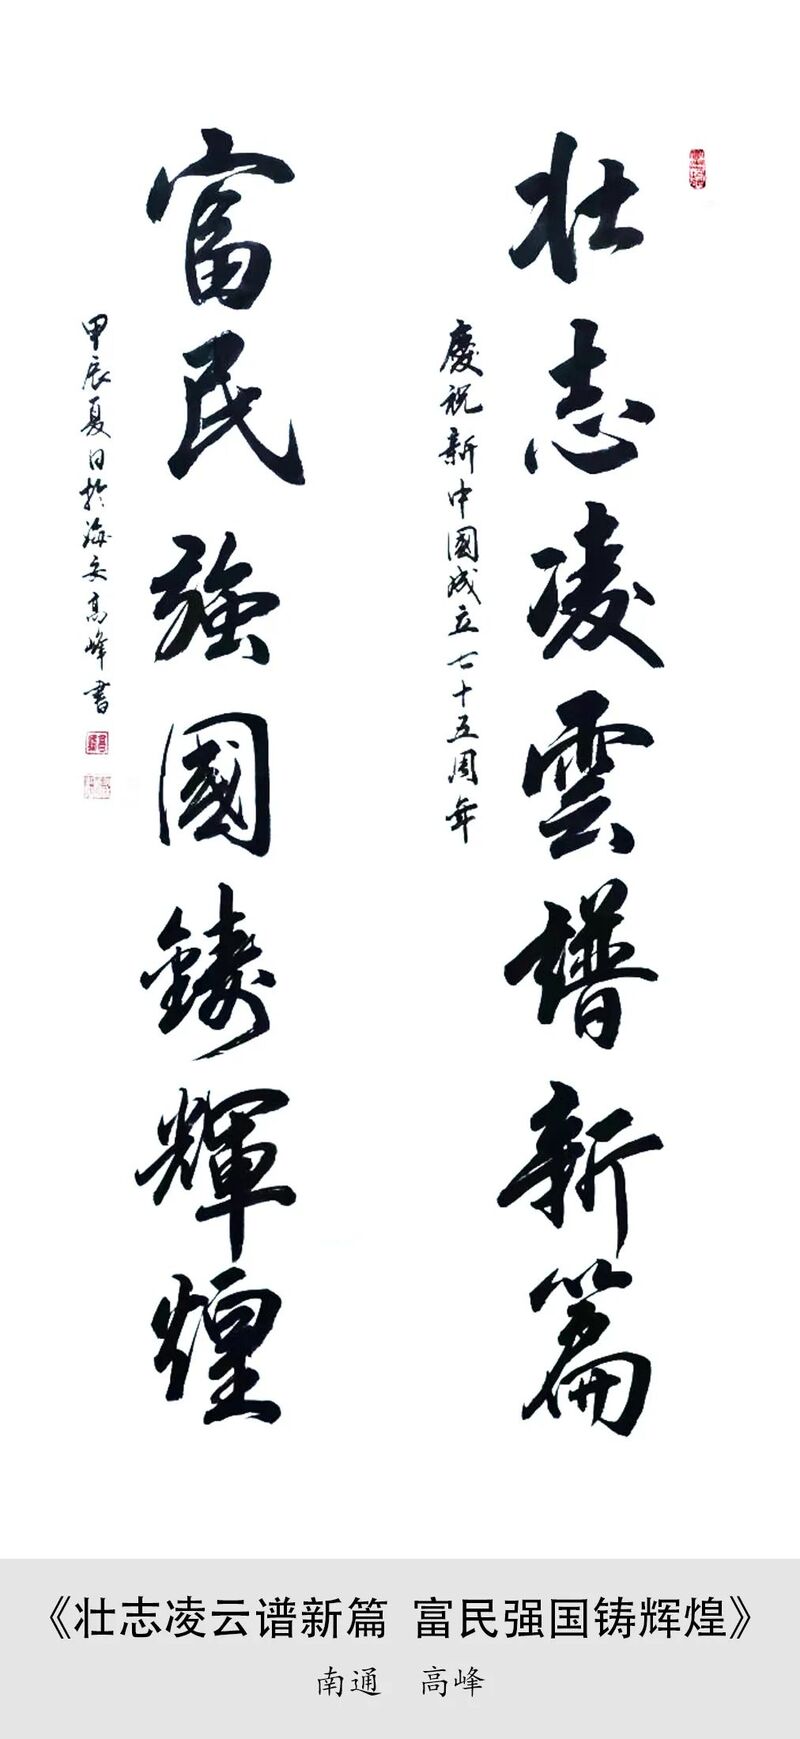 壮志凌雲譜新篇
慶祝新中國成立七十五周年
富民強國鑄輝煌
甲辰夏日於海安高峰書
《壮志凌云谱新篇 富民强国铸辉煌》
南通 高峰